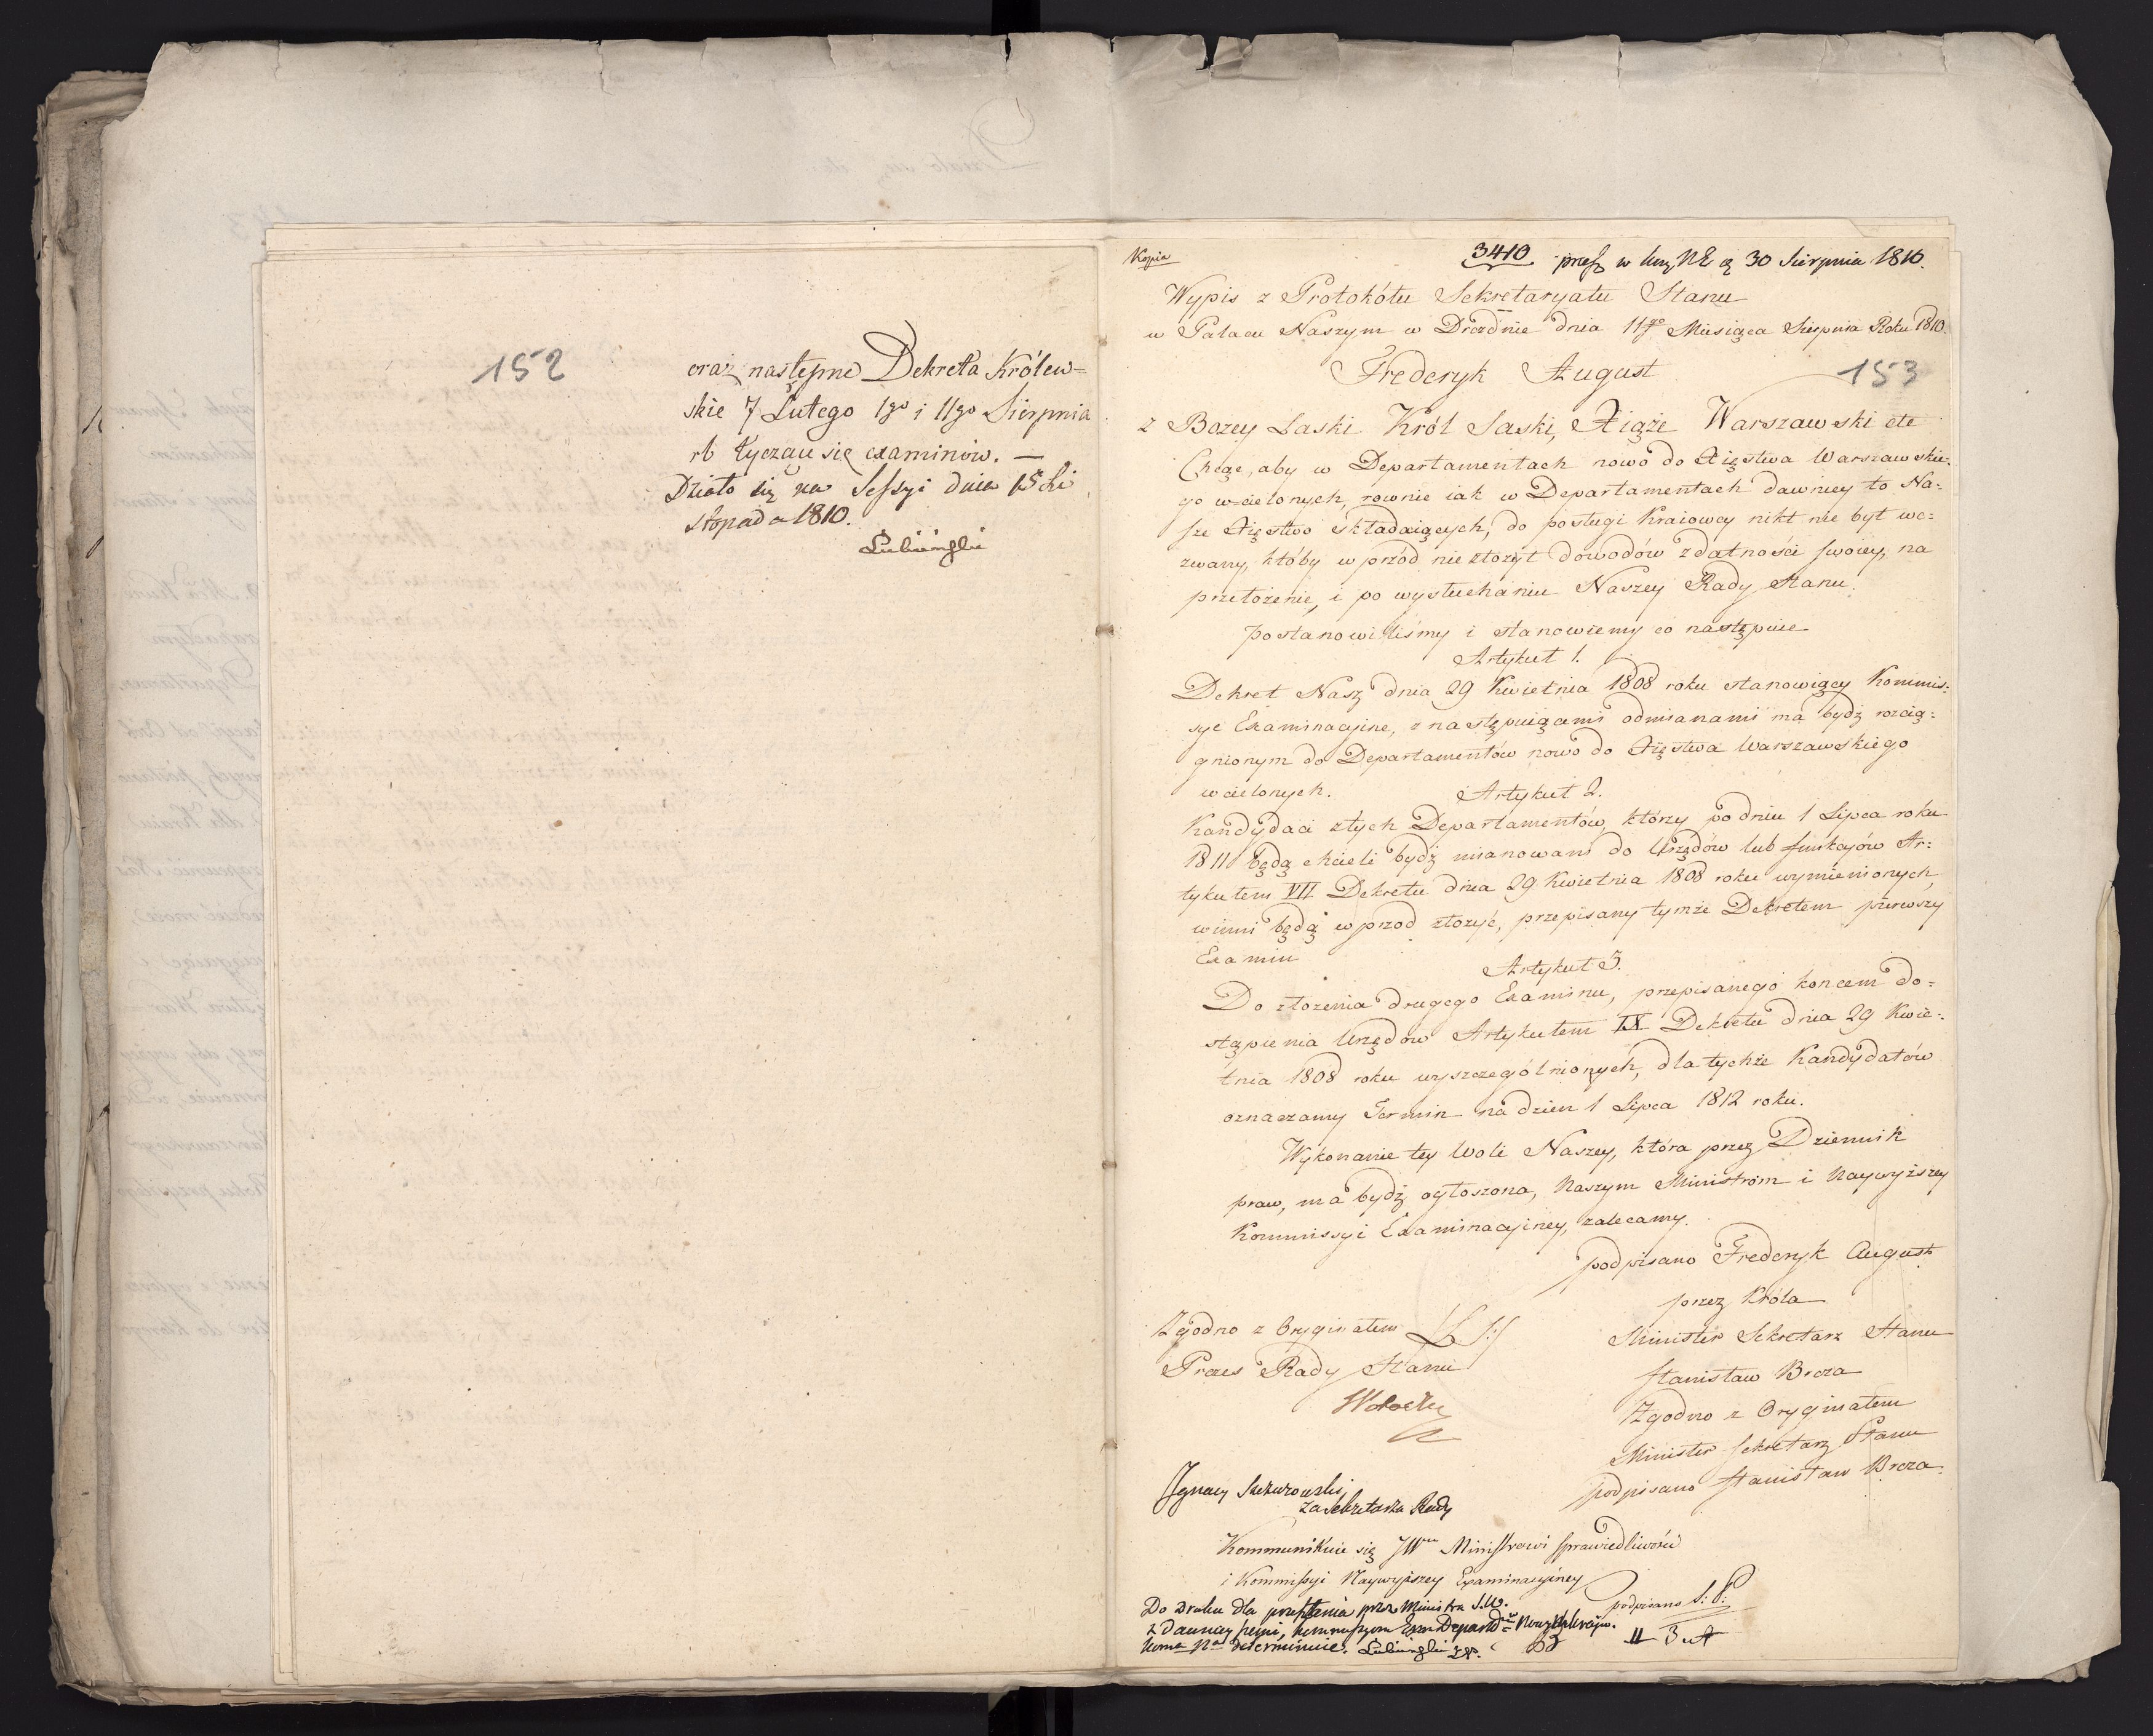 152
oraz następne Dekreta Królew=
skie 7 Lutego 1go i 11go Sierpnia
rb tyczące się examinów. —
Działo się na Sessyi dnia 15 Li
stopada 1810.
Lubiński
Kopia
3410 w 30 Sierpnia 1810.
Wypis z Protokółu Sekretaryatu Stanu
w Pałacu Naszym w Dreźnie dnia 11go Miesiąca Sierpnia Roku 1810.
Frederyk August
153
z Bozey Łaski Król Saski, Xiąże Warszawski etc
Chcąc, aby w Departamentach nowo do Xięstwa Warszawskie=
go wcielonych, rownie iak w Departamentach dawniey to Na=
sze Xięstwo składaiących, do posługi Kraiowey nikt nie był we=
zwany, któby w przód nie złożył dowodów zdatności swoiey, na
przełożenie, i po wysłuchaniu Naszey Rady Stanu.
postanowiliśmy i stanowiemy co następuie
Artykuł 1.
Dekret Nasz dnia 29 Kwietnia 1808 roku stanowiący Kommis=
sye Examinacyine, z następuiącemi odmianami ma bydź rozcią=
gnionym do Departamentów nowo do Xięstwa Warszawskiego
wcielonych.
Artykuł 2.
Kandydaci z tych Departamentów, którzy po dniu 1 Lipca roku
1811 będą chcieli bydź mianowani do Urzędów lub funkcyów Ar=
tykułem VII Dekretu dnia 29 Kwietnia 1808 roku wymienionych,
winni będą wprzod złożyć, przepisany tymże Dekretem pierwszy
Examin
Artykuł 3.
Do złożenia drugego Examinu, przepisanego koncem do=
stąpienia Urzędów Artykułem IX Dekretu dnia 29 Kwie=
tnia 1808 roku wyszczególnionych, dla tychże Kandydatów
oznaczamy Termin na dzien 1 Lipca 1812 roku.
Wykonanie tey Woli Naszey, która przez Dziennik
praw, ma bydź ogłoszona, Naszym Ministrom i Naywyższey
Kommissyi Examinacyiney, zalecamy.
podpisano Frederyk August
przez Króla
Minister Sekretarz Stanu
Stanisław Breza
Zgodno z Oryginałem
Minister Sekretarz Stanu
podpisano Stanisław Breza.
Zgodno z Oryginałem L.S.
Prezes Rady Stanu
Ignacy
za Sekretarza Rady
Kommunikuie się JWmu Ministrowi Sprawiedliwości
i Kommissyi Naywyższey Examinacyiney
podpisano S: P:
Do Druku dla przesłania przez Ministra S.W.
z
Lubiński